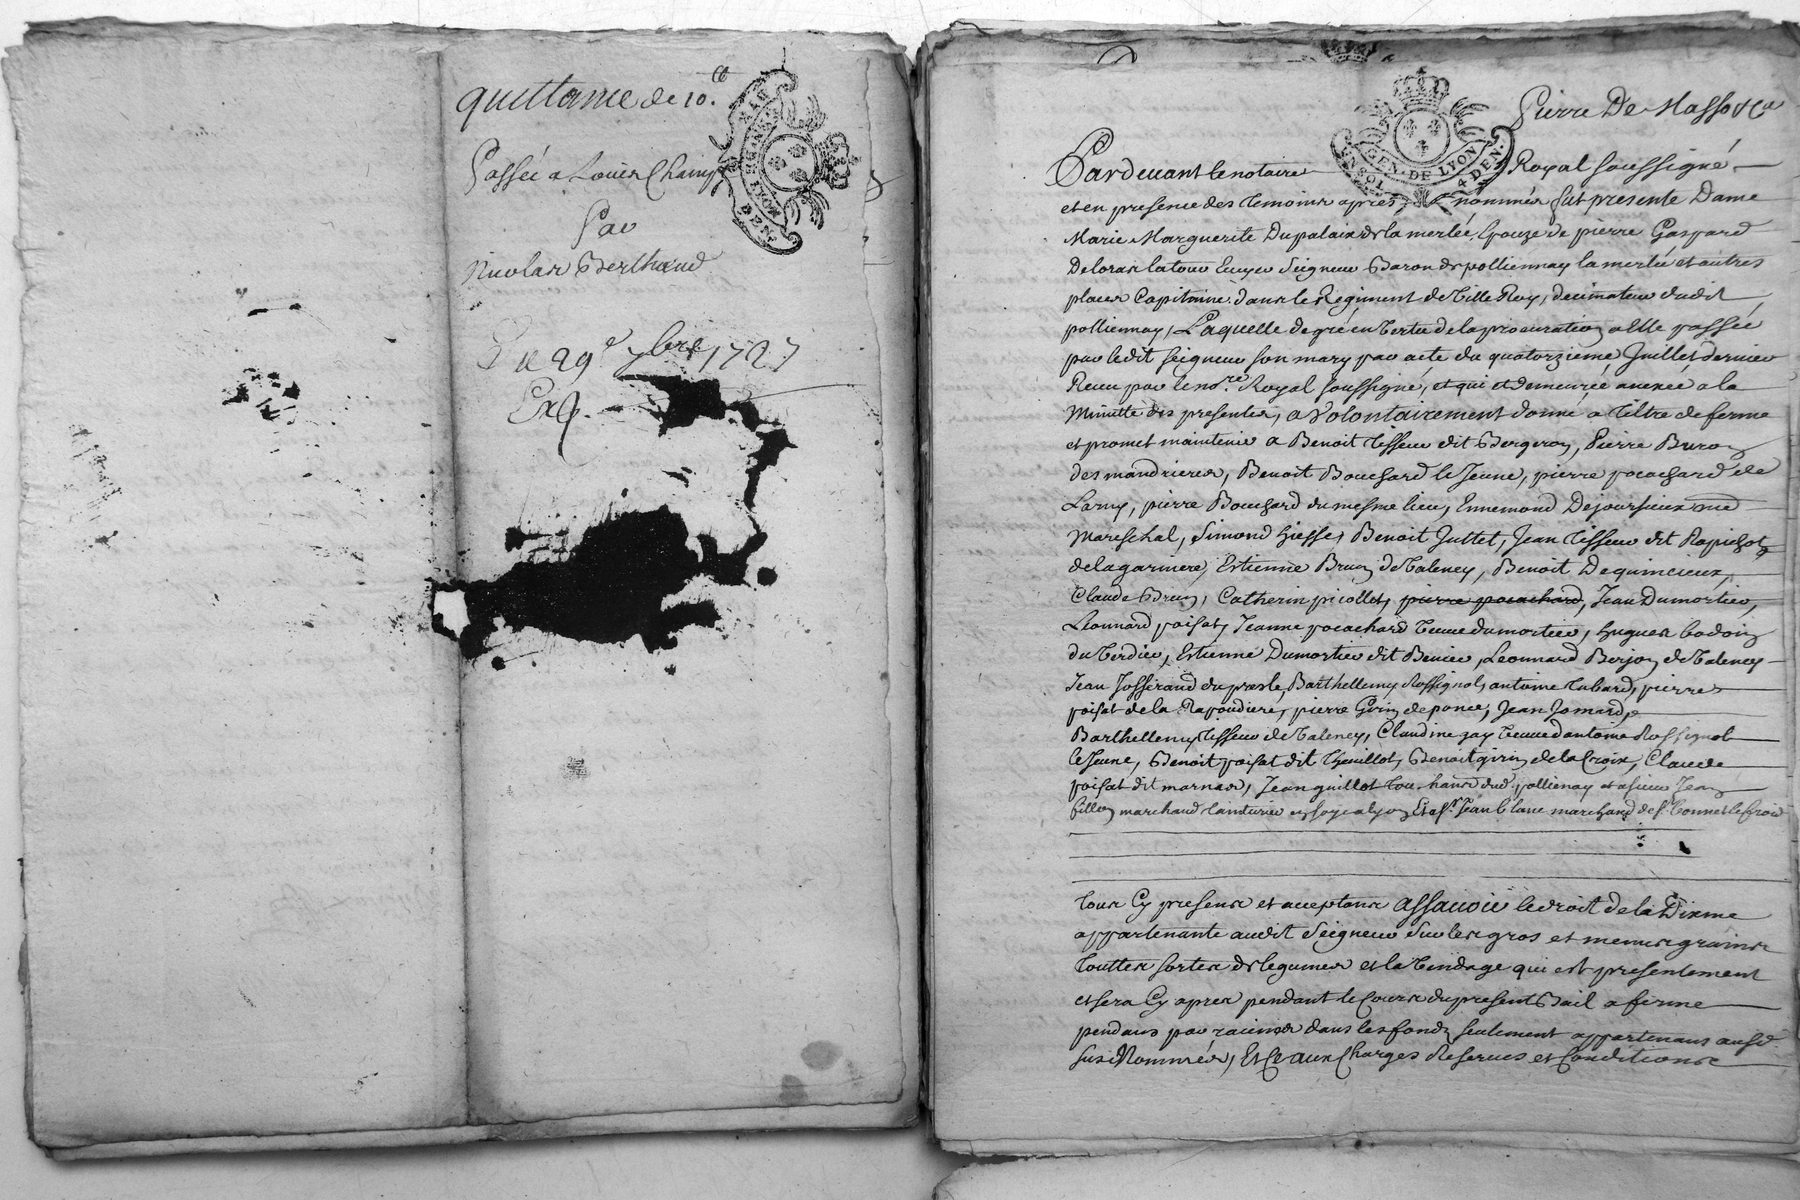 quittance de 10.tt
Passée a Louis Champ
Par
Nicolas Berthaud
Du 29e 7bre 1727
Exp.
GEN. DE LYON
4 DEN.
Pierre De Masso &Ca
Pardevant le notaire Royal soussigné
et en presence des temoins apres nommés fut presente Dame
Marie Marguerite Dupalais de la merlée, Epouze de pierre Gaspard
Deloras latour Ecuyer Seigneur Baron de polliennay la merlée et autres
places Capitaine dans le Regiment de Ville Roy, decimateur dudit
polliennay, Laquelle de gré en Vertu de la procuration a Elle passée
par ledit seigneur son mary par acte du quatorzieme Juillet dernier
Receu par le nore. Royal soussigné, et qui est demeurée anexée a la
Minutte des presentes, a Volontairement donné a tiltre de ferme
et promet maintenir a Benoit Tisseur dit Bergeron, Pierre Brun
des mandrieres, Benoit Bouchard le Jeune, pierre pocachard de
Larny, pierre Bouchard du mesme lieu, Ennemond Dejoursieux md
Mareschal, Simond Giesse, Benoit Juttet, Jean Tisseur dit Rapichot
de la gariniere, Estienne Brun de Valeney, Benoit Dequincieux,
Claude Brun, Catherin picollet, pierre pocachard, Jean Dumortier,
Leonnard poisat, Jeanne pocachard Veuve dumortier, hugues bodoin
du Verdier, Estienne Dumortier dit Benier, Leonnard Berjon de Valeney
Jean Josserand du presle, Barthellemy Rossignol, antoine Tubard, pierre
poisat de la Rapoudiere, pierre Girin de ponce, Jean Jomard,
Barthellemy Tisseur de Valeney, Claudine gay Veuve d'antoine Rossignol
le Jeune, Benoit poisat dit Thevillot, Benoit girin de la Croix, Claude
poisat dit marnas, Jean guillot tous hans dud. pollienay et a sieur Jean
fillon marchand tainturier en soye a lyon Et a sr. Jean blanc marchand de st. bonnet le froid
Tous Cy presens et acceptans Assavoir le droit de la Dixme
appartenante audit Seigneur sur les gros et menus grains
Touttes sortes de legumes et la Vendage qui est presentement
et sera Cy apres pendant le Cours du present Bail a ferme
pendans par racines dans les fonds seulement appartenans ausd.
sus Nommés, Et Ce aux Charges Reserves et Conditions